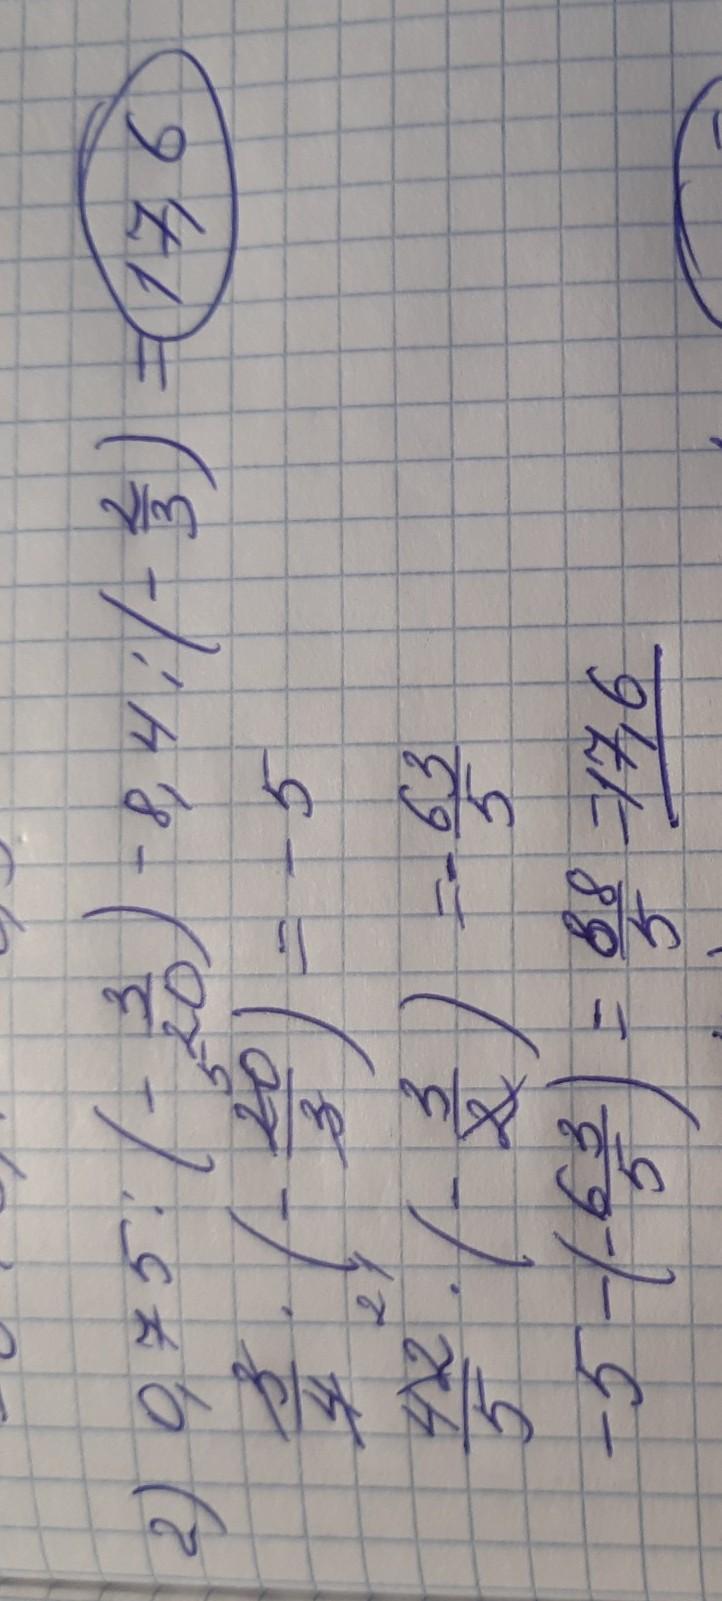 2) 0,75 : (- 3/20) - 8,4 : (- 2/3) = 17,6
3/4 · (- 20/3) = - 5
42/5 · (- 3/2) = - 63/5
-5 - (- 63/5) = 88/5 = 17,6